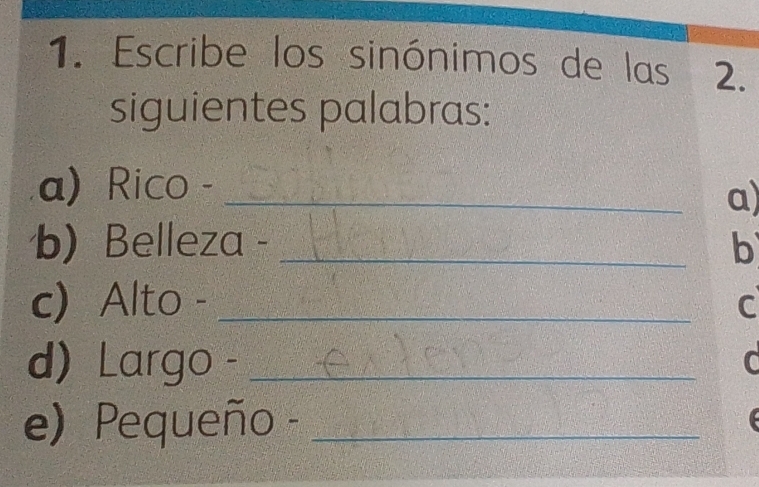 1. Escribe los sinónimos de las 2.
siguientes palabras:
a) Rico - a)
b) Belleza - b)
c) Alto - c
d) Largo - extenso d
e) Pequeño - e